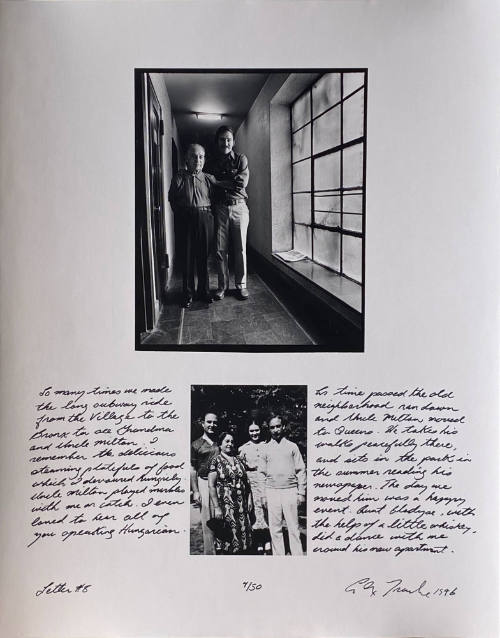 So many times we made
the long subway ride
from the Village to the
Bronx to see Grandma
and Uncle Milton. I
remember the delicious
steaming platefuls of food
which I devoured hungrily.
Uncle Milton played marbles
with me or catch. I even
loved to hear all of
you speaking Hungarian.
As time passed the old
neighborhood ran down
and Uncle Milton moved
to Queens. He takes his
walks peacefully there,
and sits in the park in
the summer reading his
newspaper. The day we
moved him was a happy
event. Aunt Gladyse, with
the help of a little whiskey,
did a dance with me
around his new apartment.
Letter #8
4/50
1996